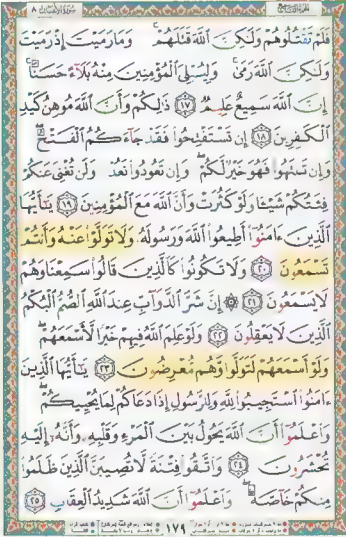 سورة الأنفال ٨
فَلَمْ تَقْتُلُوهُمْ وَلَٰكِنَّ ٱللَّهَ قَتَلَهُمْ ۚ وَمَا رَمَيْتَ إِذْ رَمَيْتَ
وَلَٰكِنَّ ٱللَّهَ رَمَىٰ ۚ وَلِيُبْلِىَ ٱلْمُؤْمِنِينَ مِنْهُ بَلَآءً حَسَنًا ۚ
إِنَّ ٱللَّهَ سَمِيعٌ عَلِيمٌ ١٧ ذَٰلِكُمْ وَأَنَّ ٱللَّهَ مُوهِنُ كَيْدِ
ٱلْكَٰفِرِينَ ١٨ إِن تَسْتَفْتِحُوا۟ فَقَدْ جَآءَكُمُ ٱلْفَتْحُ ۖ
وَإِن تَنتَهُوا۟ فَهُوَ خَيْرٌ لَّكُمْ ۖ وَإِن تَعُودُوا۟ نَعُدْ وَلَن تُغْنِىَ عَنكُمْ
فِئَتُكُمْ شَيْـًٔا وَلَوْ كَثُرَتْ وَأَنَّ ٱللَّهَ مَعَ ٱلْمُؤْمِنِينَ ١٩ يَٰٓأَيُّهَا
ٱلَّذِينَ ءَامَنُوٓا۟ أَطِيعُوا۟ ٱللَّهَ وَرَسُولَهُۥ وَلَا تَوَلَّوْا۟ عَنْهُ وَأَنتُمْ
تَسْمَعُونَ ٢٠ وَلَا تَكُونُوا۟ كَٱلَّذِينَ قَالُوا۟ سَمِعْنَا وَهُمْ
لَا يَسْمَعُونَ ٢١ ۞ إِنَّ شَرَّ ٱلدَّوَآبِّ عِندَ ٱللَّهِ ٱلصُّمُّ ٱلْبُكْمُ
ٱلَّذِينَ لَا يَعْقِلُونَ ٢٢ وَلَوْ عَلِمَ ٱللَّهُ فِيهِمْ خَيْرًا لَّأَسْمَعَهُمْ ۖ
وَلَوْ أَسْمَعَهُمْ لَتَوَلَّوا۟ وَّهُم مُّعْرِضُونَ ٢٣ يَٰٓأَيُّهَا ٱلَّذِينَ
ءَامَنُوا۟ ٱسْتَجِيبُوا۟ لِلَّهِ وَلِلرَّسُولِ إِذَا دَعَاكُمْ لِمَا يُحْيِيكُمْ ۖ
وَٱعْلَمُوٓا۟ أَنَّ ٱللَّهَ يَحُولُ بَيْنَ ٱلْمَرْءِ وَقَلْبِهِۦ وَأَنَّهُۥٓ إِلَيْهِ
تُحْشَرُونَ ٢٤ وَٱتَّقُوا۟ فِتْنَةً لَّا تُصِيبَنَّ ٱلَّذِينَ ظَلَمُوا۟
مِنكُمْ خَآصَّةً ۖ وَٱعْلَمُوٓا۟ أَنَّ ٱللَّهَ شَدِيدُ ٱلْعِقَابِ ٢٥
١٧٩